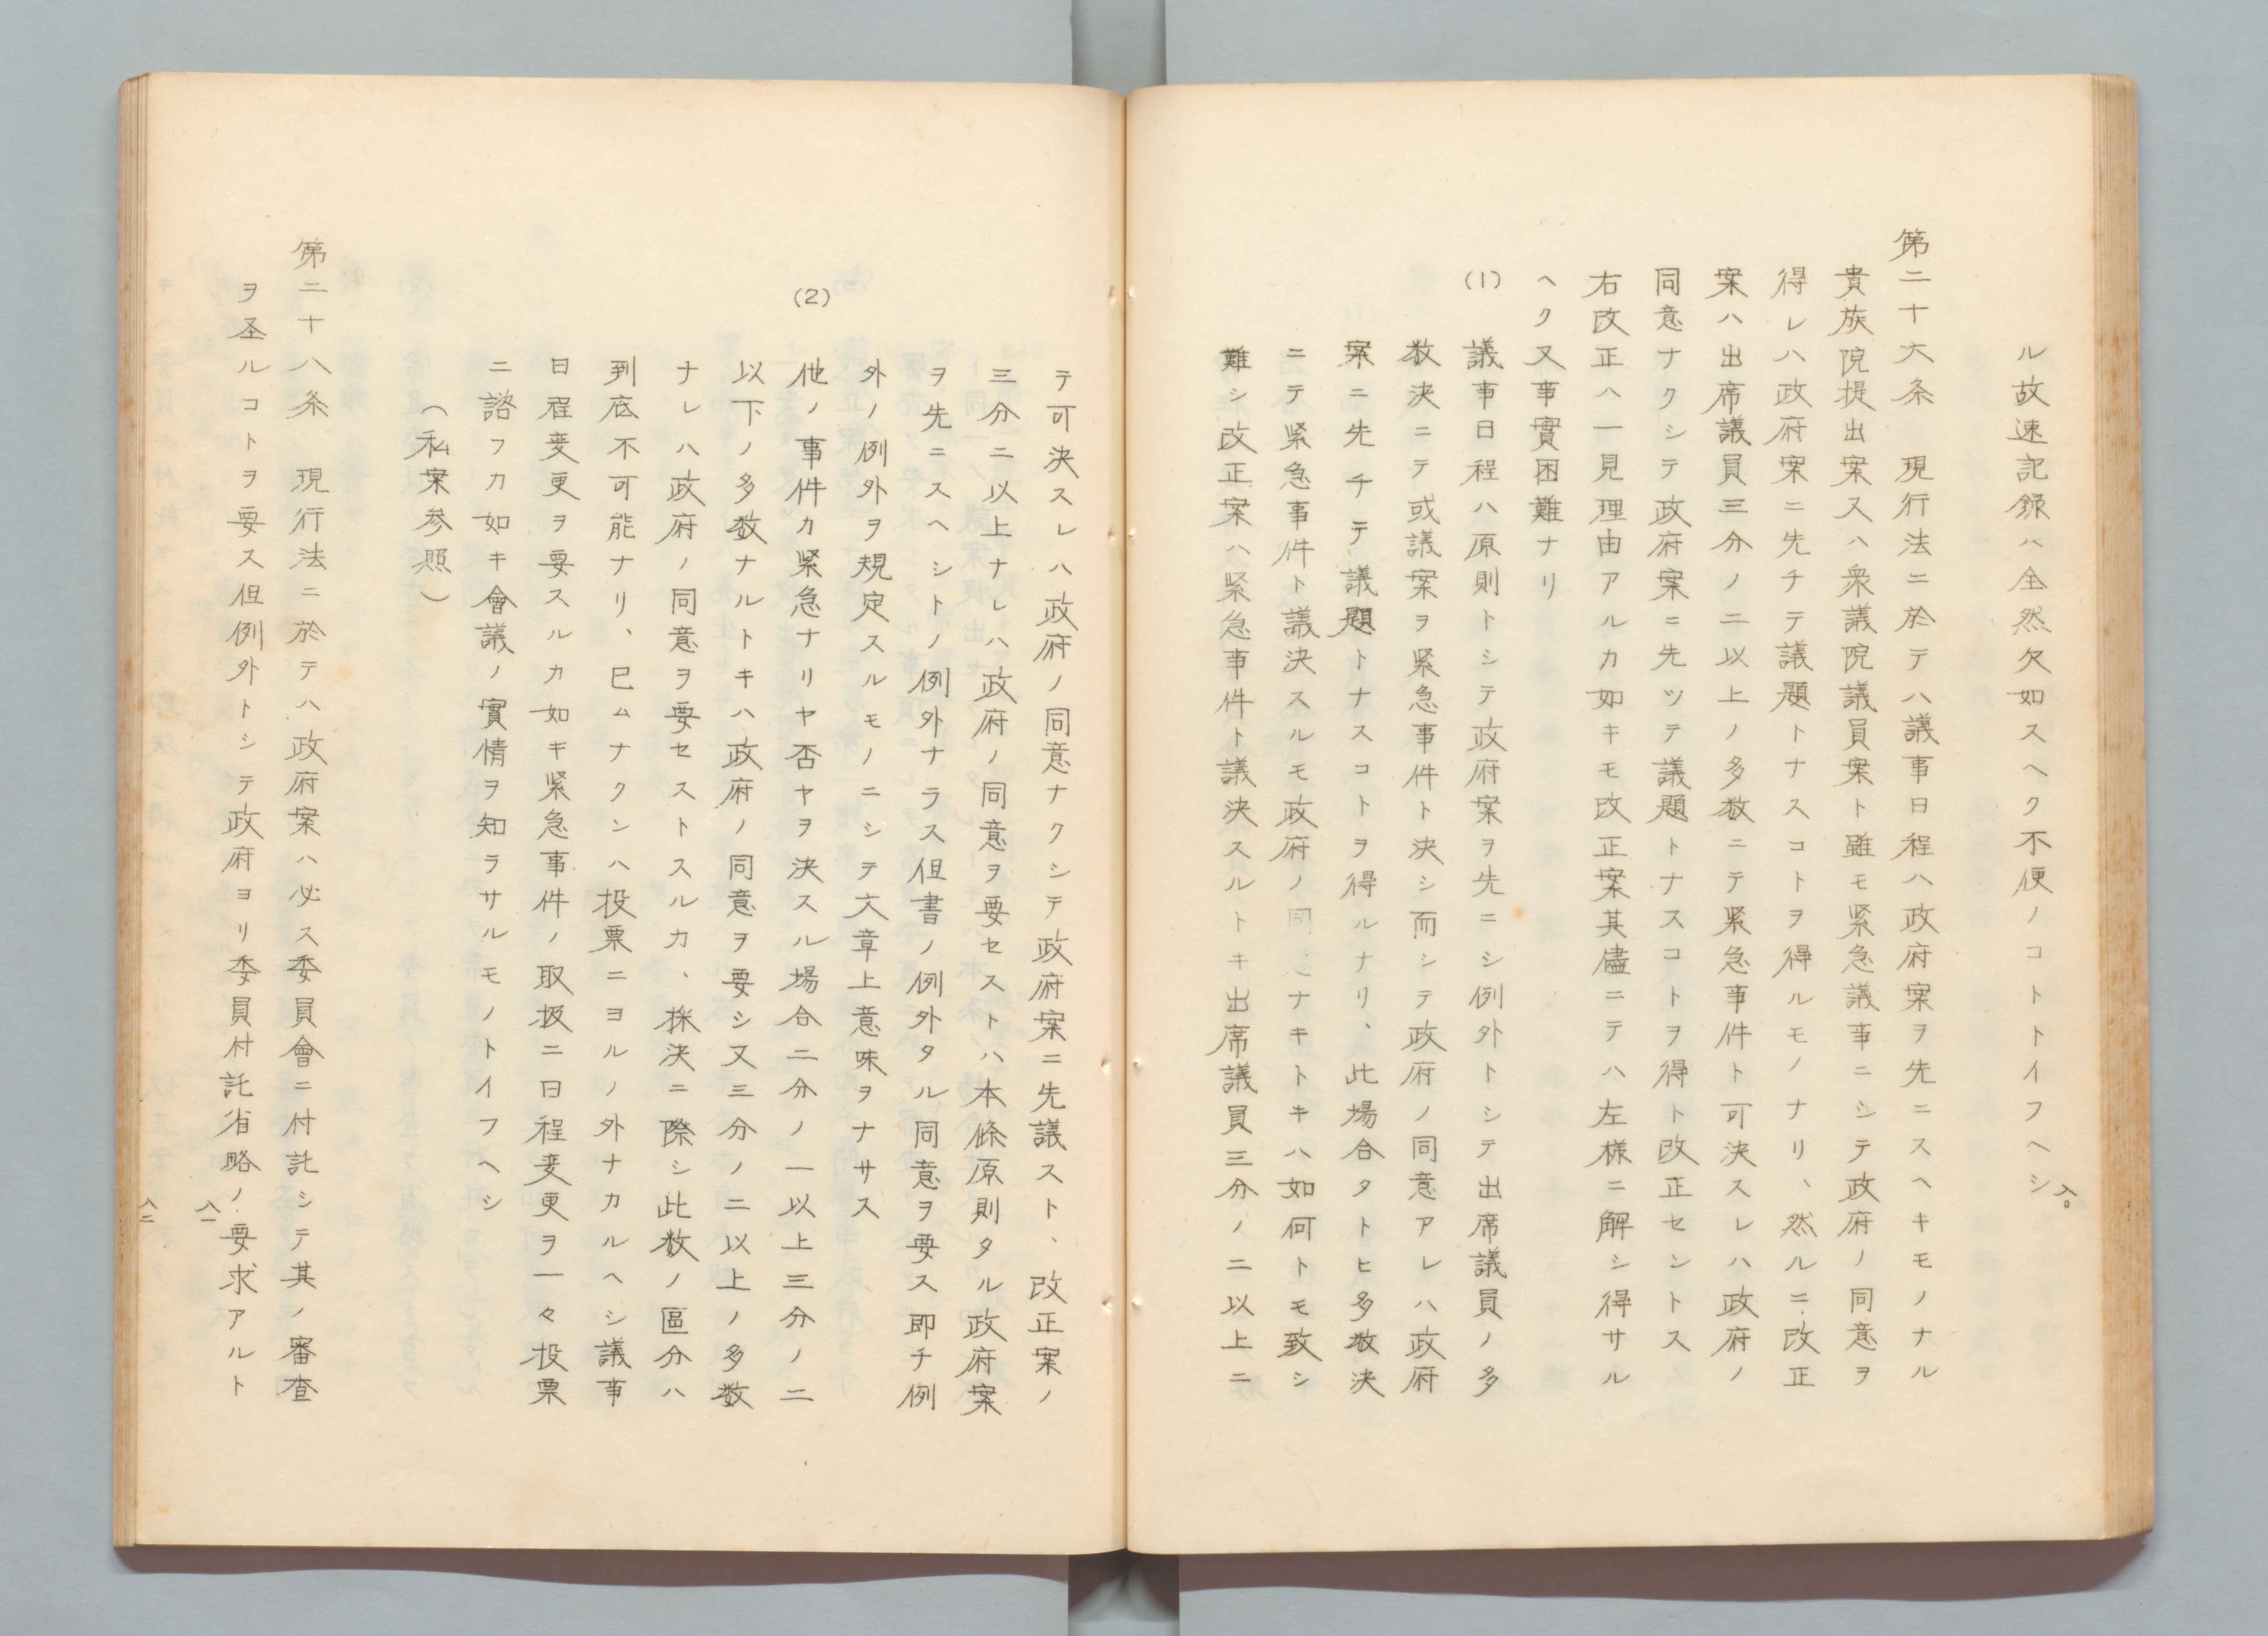 ル故速記録ハ全然欠如スヘク不便ノコトトイフヘシ
八〇
第二十六条　現行法ニ於テハ議事日程ハ政府案ヲ先ニスヘキモノナル
貴族院提出案又ハ衆議院議員案ト雖モ緊急議事ニシテ政府ノ同意ヲ
得レハ政府案ニ先チテ議題トナスコトヲ得ルモノナリ、然ルニ改正
案ハ出席議員三分ノ二以上ノ多数ニテ緊急事件ト可決スレハ政府ノ
同意ナクシテ政府案ニ先ツテ議題トナスコトヲ得ト改正セントス
右改正ハ一見理由アルカ如キモ改正案其儘ニテハ左様ニ解シ得サル
ヘク又事實困難ナリ
(1)　議事日程ハ原則トシテ政府案ヲ先ニシ例外トシテ出席議員ノ多
数決ニテ或議案ヲ緊急事件ト決シ而シテ政府ノ同意アレハ政府
案ニ先チテ議題トナスコトヲ得ルナリ、此場合タトヒ多数決
ニテ緊急事件ト議決スルモ政府ノ同意ナキトキハ如何トモ致シ
難シ改正案ハ緊急事件ト議決スルトキ出席議員三分ノ二以上ニ
テ可決スレハ政府ノ同意ナクシテ政府案ニ先議スト、改正案ノ
三分ニ以上ナレハ政府ノ同意ヲ要セストハ本條原則タル政府案
ヲ先ニスヘシトノ例外ナラス但書ノ例外タル同意ヲ要ス即チ例
外ノ例外ヲ規定スルモノニシテ文章上意味ヲナサス
(2)　他ノ事件カ緊急ナリヤ否ヤヲ決スル場合二分ノ一以上三分ノ二
以下ノ多数ナルトキハ政府ノ同意ヲ要シ又三分ノ二以上ノ多数
ナレハ政府ノ同意ヲ要セストスルカ、採決ニ際シ此数ノ區分ハ
到底不可能ナリ、已ムナクンハ投票ニヨルノ外ナカルヘシ議事
日程変更ヲ要スルカ如キ緊急事件ノ取扱ニ日程変更ヲ一々投票
ニ諮フカ如キ會議ノ實情ヲ知ラサルモノトイフヘシ
（私案参照）
第二十八条　現行法ニ於テハ政府案ハ必ス委員會ニ付託シテ其ノ審査
ヲ圣ルコトヲ要ス但例外トシテ政府ヨリ委員付託省略ノ要求アルト
八一
八二